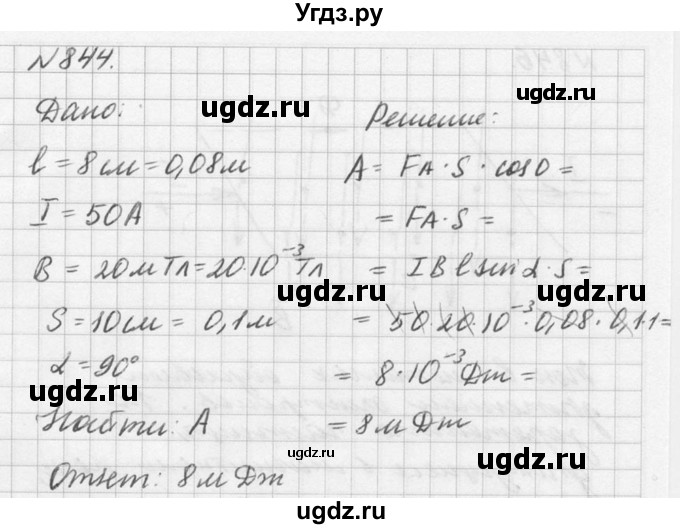 Угдз.ру
N 844.
Дано:
ugdz.ru
ugdz.ru
Решение:
l = 8 см = 0,08 м
A = FA · S · cos 0 =
I = 50 A
= FA · S =
B = 20 мТл = 20·10⁻³ Тл
= I B l sin α · S =
ugdz.ru
ugdz.ru
S = 10 см = 0,1 м
= 50·20·10⁻³·0,08·0,1·1 =
α = 90°
= 8·10⁻³ Дж =
ugdz.ru
ugdz.ru
Найти: A
= 8 мДж
ugdz.ru
Ответ: 8 мДж
ugdz.ru
ugdz.ru